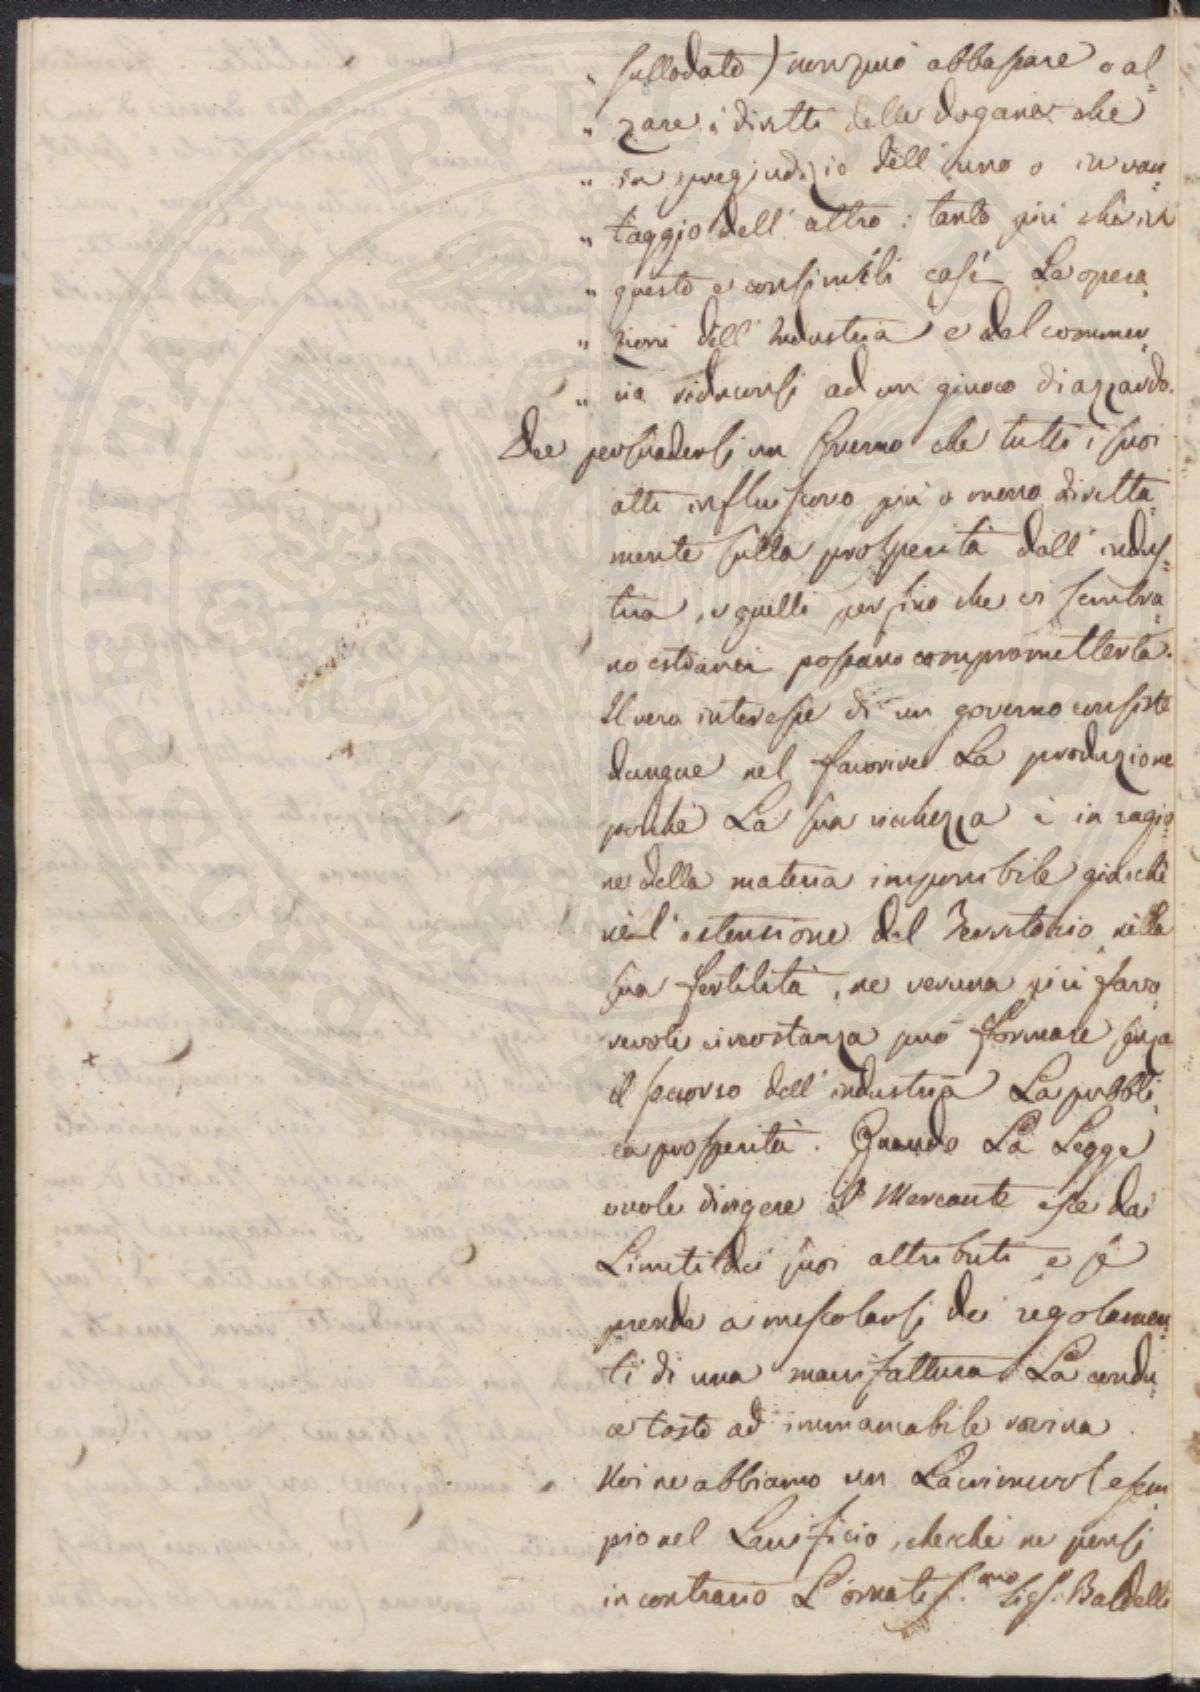 " sullodato) non può abbassare o al=
" zare i diritti delle dogane che
" in pregiudizio dell' uno o in van=
" taggio dell' altro: tanto più che in
" questo e consimili casi Le opera=
" zioni dell' Industria e del commer=
" cio riduconsi ad un giuoco di azzardo.
Dee persuadersi un Governo che tutti i suoi
atti influiscono più o meno diretta=
mente sulla prosperità dell' indus=
tria, e quelli persino che ci sembra=
no estranei possano comprometterla.
Il vero interesse di un governo consiste
dunque nel favorire La produzione
poiché La sua ricchezza è in ragio=
ne della materia imponibile giacchè
nè l' estensione del Territorio, nè la
sua fertilità, ne veruna più favo=
revole circostanza può formare senza
il soccorso dell' industria La pubbli=
ca prosperità. Quando La Legge
vuole dirigere il Mercante esce dai
Limiti dei suoi attributi e se
prende a mescolarsi dei regolamen=
ti di una manifattura La condu=
ce tosto ad immancabile rovina.
Noi ne abbiamo un Lacrimevol esem=
pio nel Lanificio, checchè ne pensi
in contrario L' ornatiss.mo Sig. Baldelli